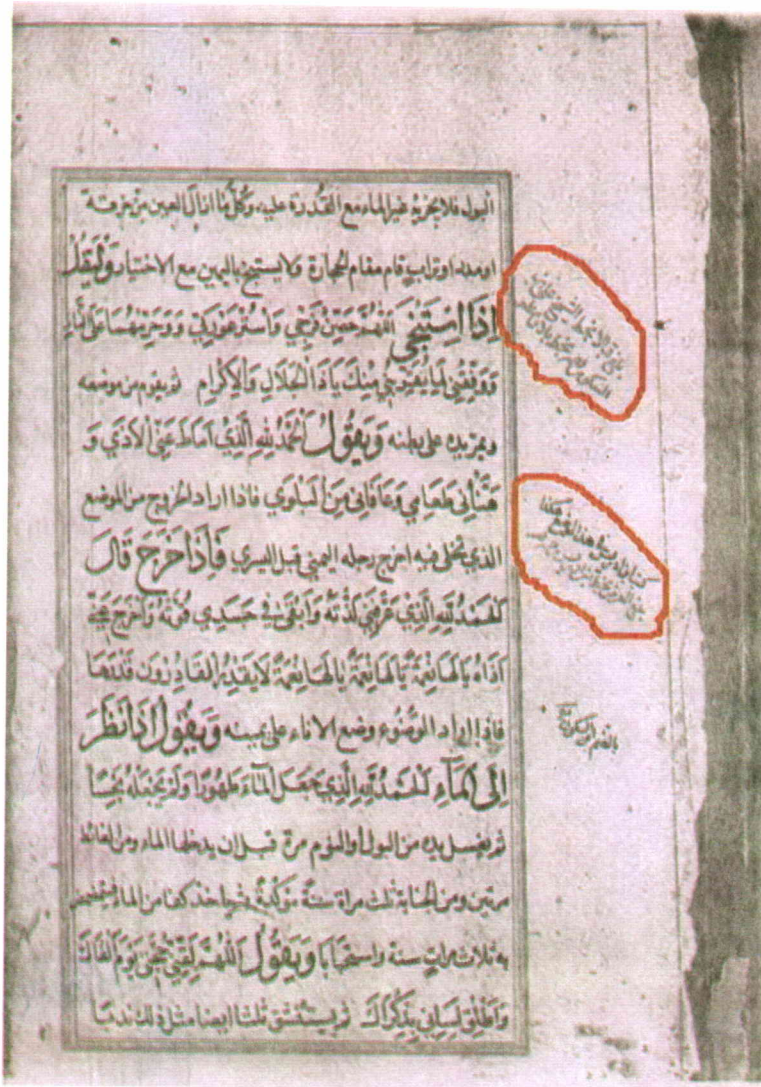 البول فلا يجزيه غير الماء مع القدرة عليه وكل ما ازال العين من خرقة
او مدر او تراب قام مقام الحجارة ولا يستنجي باليمين مع الاختيار وليقل
اذا استنجى اللهم حصن فرجي واستر عورتي وحرمهما على النار
ووفقني لما يقربني منك ياذا الجلال والاكرام ثم يقوم من موضعه
ويمر يده على بطنه ويقول الحمد لله الذي اماط عني الاذى و
هنأني طعامي وعافاني من البلوى فاذا اراد الخروج من الموضع
الذي تخلى فيه اخرج رجله اليمنى قبل اليسرى فاذا خرج قال
الحمد لله الذي عرفني لذته وابقى في جسدي قوته واخرج عني
اذاه يالها نعمة يالها نعمة يالها نعمة لا يقدر القادرون قدرها
فاذا اراد الوضوء وضع الاناء على يمينه ويقول اذا نظر
الى الماء الحمد لله الذي جعل الماء طهورا ولم يجعله نجسا
ثم يغسل يده من البول او النوم مرة قبل ان يدخلها الماء ومن الغائط
مرتين ومن الجنابة ثلث مراة سنة مؤكدة ثم ياخذ كفا من الما فيتمضمض
به ثلاث مرات سنة واستحبابا ويقول اللهم لقني حجتي يوم القاك
واطلق لساني بذكراك ثم يستنشق ثلثا ايضا مثل ذلك ندبا